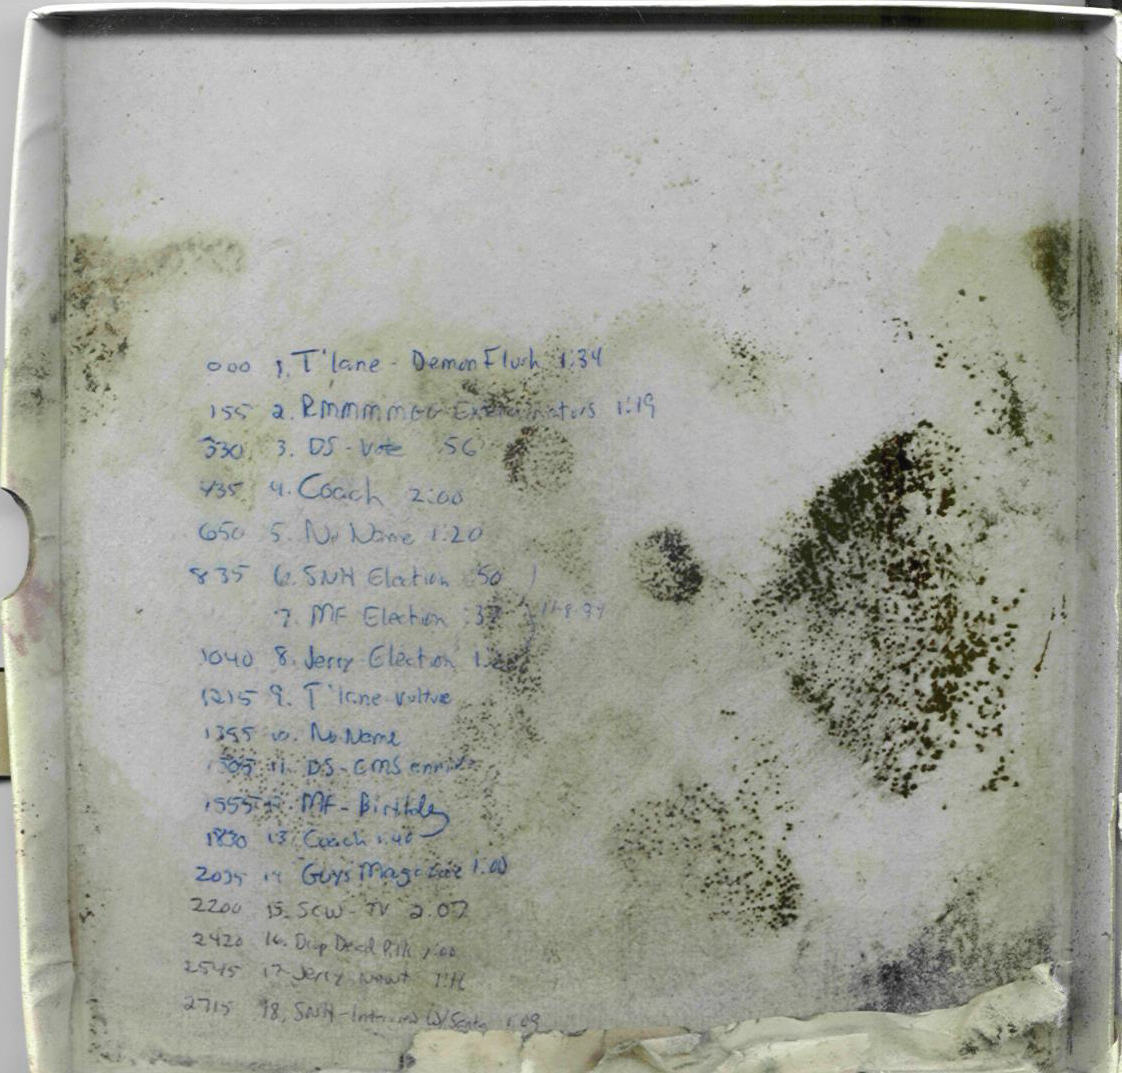 000 1. T'lane - Demon Flush 1:34
155 2. Exterminators 1:19
330 3. DS - Vote :56
435 4. Coach 2:00
650 5. No Name 1:20
835 6. SNH Election :50
7. MF Election :37 11-8-94
1040 8. Jerry Election
1215 9. T'lane vulture
1355 10. No Name
11. DS - CMS
1555 MF - Birthday
1830 13. Coach 1:40
2035 14 Guys Magazine 1:00
2200 15. SCW - TV 2:07
2420 16. Drop Dead
2545 17. Jerry Newt
2715 18. SNH - W/Santa 1:09